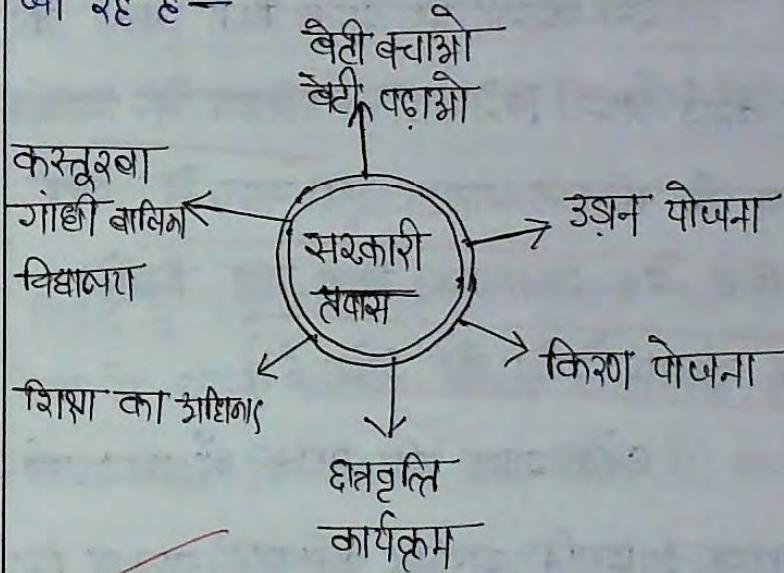 जा रहे हैं—
बेटी बचाओ
बेटी पढ़ाओ
कस्तूरबा
गांधी बालिका
विद्यालय
उड़ान योजना
सरकारी
प्रयास
किरण योजना
शिक्षा का अधिकार
छात्रवृत्ति
कार्यक्रम